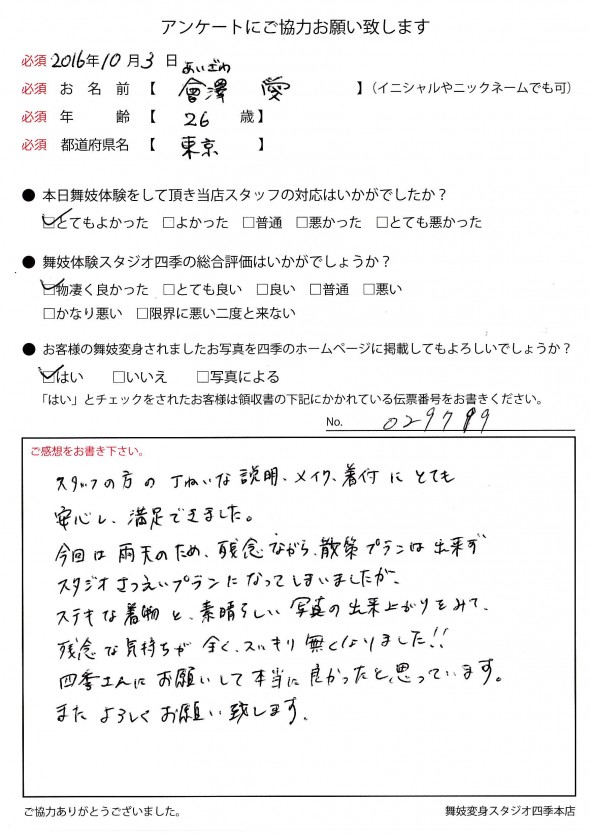 アンケートにご協力お願い致します
必須 2016年10月3日
あいざわ
必須 お名前 【 會澤 愛 】（イニシャルやニックネームでも可）
必須 年齢 【 26 歳】
必須 都道府県名 【 東京 】
● 本日舞妓体験をして頂き当店スタッフの対応はいかがでしたか？
☑とてもよかった □よかった □普通 □悪かった □とても悪かった
● 舞妓体験スタジオ四季の総合評価はいかがでしょうか？
☑物凄く良かった □とても良い □良い □普通 □悪い
□かなり悪い □限界に悪い二度と来ない
● お客様の舞妓変身されましたお写真を四季のホームページに掲載してもよろしいでしょうか？
☑はい □いいえ □写真による
「はい」とチェックをされたお客様は領収書の下記にかかれている伝票番号をお書きください。
No. 029789
ご感想をお書き下さい。
スタッフの方の丁ねいな説明、メイク、着付にとても
安心し、満足できました。
今回は雨天のため、残念ながら、散策プランは出来ず
スタジオさつえいプランになってしまいましたが、
ステキな着物と、素晴らしい写真の出来上がりをみて、
残念な気持ちが全く、スッキリ無くなりました!!
四季さんにお願いして本当に良かったと、思っています。
またよろしくお願い致します。
ご協力ありがとうございました。
舞妓変身スタジオ四季本店